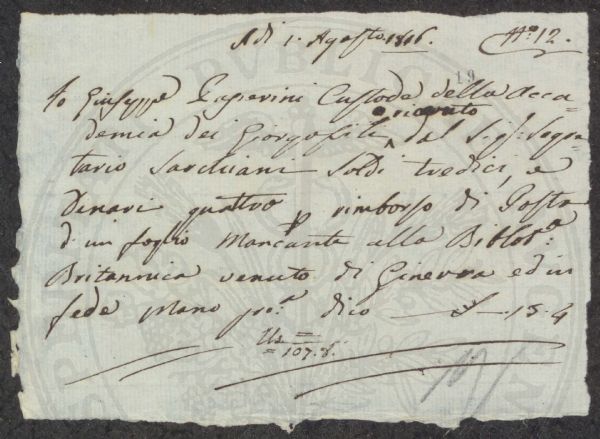 Adi 1. Agosto 1816. N.º 12.
19
Io Giuseppe Gasperini Custode della Acca=
demia dei Giorgofili ho ricevuto dal Sig.r Segre=
tario Sarchiani Soldi tredici, e
Denari quattro p rimborso di Posta
d'un foglio Mancante alla Bibliot.a
Britannica venuto di Ginevra ed in
fede Mano pro.a dico — 13.4
107.8.